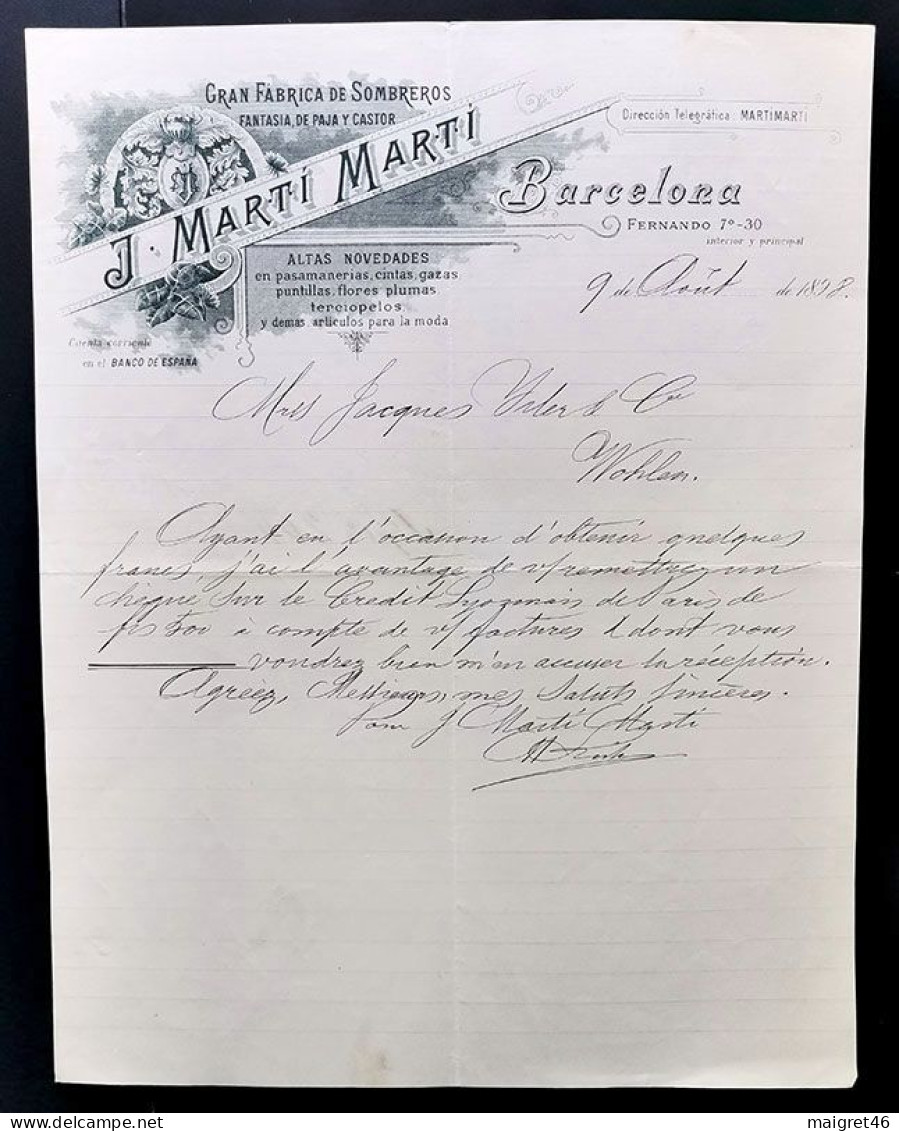 GRAN FÁBRICA DE SOMBREROS
FANTASIA, DE PAJA Y CASTOR
J. MARTÍ MARTÍ
Dirección Telegráfica: MARTÍMARTÍ
Barcelona
FERNANDO 7º-30
interior y principal
ALTAS NOVEDADES
en pasamanerias, cintas, gazas
puntillas, flores plumas
terciopelos
y demas articulos para la moda
Cuenta corriente
en el BANCO DE ESPAÑA
9 de Août de 1898.
Mrss Jacques Isler & Cie
Wohlen.
Ayant eu l'occasion d'obtenir quelques
francs, j'ai l'avantage de v/ remettre un
chèque sur le Credit Lyonnais de Paris de
fcs 500 à compte de v/ factures & dont vous
voudrez bien m'en accuser la réception.
Agréez, Messieurs, mes saluts sincères.
J Marti Marti
maigret46